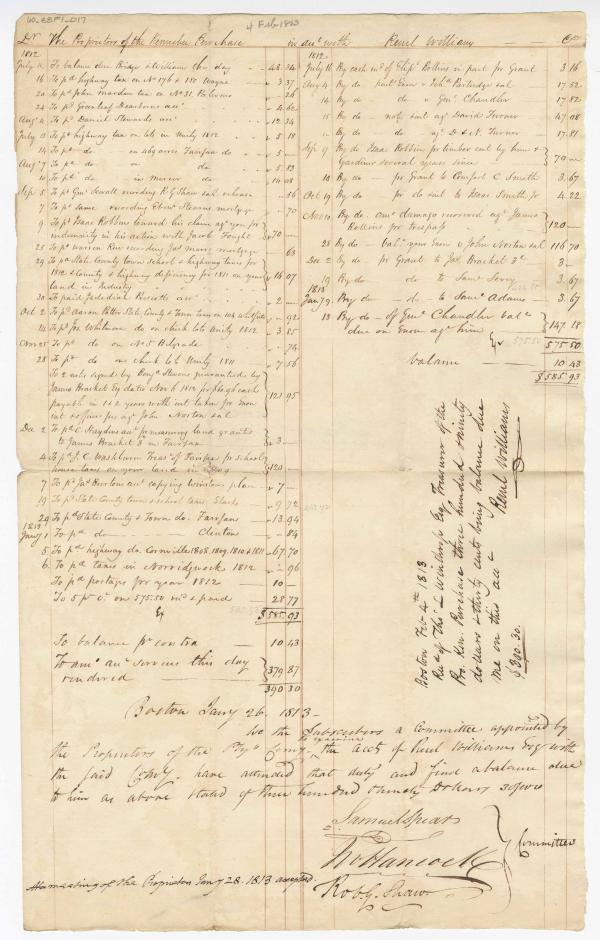 4 Feb 1813
Dr The Proprietors of the Kennebec Purchase in acct with Reuel Williams Cr
1812
To balance due Bridge & Williams this day 48 34
16 To pd highway tax on No 176 & 185 Wayne 3 37
20 To pd John Marden tax on No 31 Palermo
24 To pd Greenleaf Dearborns acct 4 62
Aug 4 To pd Daniel Stewards acct 12 34
July 13 To pd highway tax on lots in Unity 1812 5 18
14 To pd do on 469 acres Fairfax do 5 -
Aug 7 To pd do on do 5 13
10 To pd do in Mercer do 14 08
Sep 5 To pd Genl Sewall recording R G Shaw release 56
7 To pd same recording Ebenr Stearns mortgage 70
9 To pd Isaac Robbins toward his claim agt you for
indemnity in his action with Jacob Fought 70 -
25 To pd Warren Rice recording Jas mortgage 63
29 To pd State County town school & highway taxes for
1812 & County & highway deficiency for 1811 on your
land in Industry 16 07
30 To paid Jedediah Prescotts acct 2 -
Oct 2 To pd Aaron Potter State County & Town taxes on 104 Whitefield 92
14 To pd for Whitmore do on check lots Unity 1812 3 85
Nov 25 To pd do on No 5 Belgrade 74
28 To pd do on check lots Unity 1811 7 56
To 2 notes signed by Benja Stevens guaranteed by
James Bracket Esq dated Nov 6 1812 for cash
payable in 1 & 2 years with int taken for
cut & agt John Norton
121 95
Dec 2 To pd C. Haydens acct for measuring land granted
to James Bracket 3d in Fairfax 3 -
4 To pd I. C. Washburn Treasr of Fairfax for school
house taxes on your land in 1809 120
7 To pd Jas Burtons acct copying Winslow plan 7 -
19 To pd State County town & school taxes Starks 9 72
29 To pd State County & Town do. Fairfax 13 94
1813
Jany 1 To pd do Clinton 84
5 To pd highway do. Cornville 1808, 1809, 1810 & 1811 67 70
6 To pd taxes in Norridgewock 1812 96
To pd postages for year 1812 10 -
To 5 pr Ct on 575.50 recd & paid 28 77
$585.93
To balance pr contra 10 43
To amt acct services this day
rendered 379 87
390 30
1812
July 16 By cash recd of Elipt Robbins in part for Grant 3 16
Aug 4 By do part Exon v John Partridge sal 17 52
do do v Genl Chandler 17 82
15 By do note sent agt David Turner 47 08
By do do agt D & N. Turner 17 81
Sep 9 By do Isaac Robbins for timber cut by him &
Gardiner several years since 70 -
18 By do for Grant to Comfort C Smith 3.67
Oct 19 By do for do sent to Isaac Smith Jr 4 22
Nov 10 By do amt damage recovered agt James
Rollins for trespass 120 -
28 By do balc your Exon v John Norton sal 116 70
Dec 2 By do for Grant to Jas Bracket 3d 3 -
19 By do do to Saml 3.67
1813
Jany 9. By do do to Saml Adams 3.67
18 By do of Genl Chandler balc
due on Exon agt him 147.18
575.50
balance 10 43
$585.93
Boston Feb 4th 1813
Recd of Thos L Winthrop Esq Treasurer of the
Pro. Ken. Purchase three hundred & ninety
dollars & thirty cents being balance due
me on this acct
$390.30.
Reuel Williams
Boston Jany 26. 1813 -
We the Subscribers a Committee appointed by
the Proprietors of the Compy to examine the acct of Reuel Williams Esq with
the said Compy. have attended that duty and find a balance due
to him as above stated of three hundred & ninety Dollars 30/100
Samuel Spear
Tho Hancock
Rob G. Shaw
Committee
At a meeting of the Proprietors Jany 28. 1813 accepted.